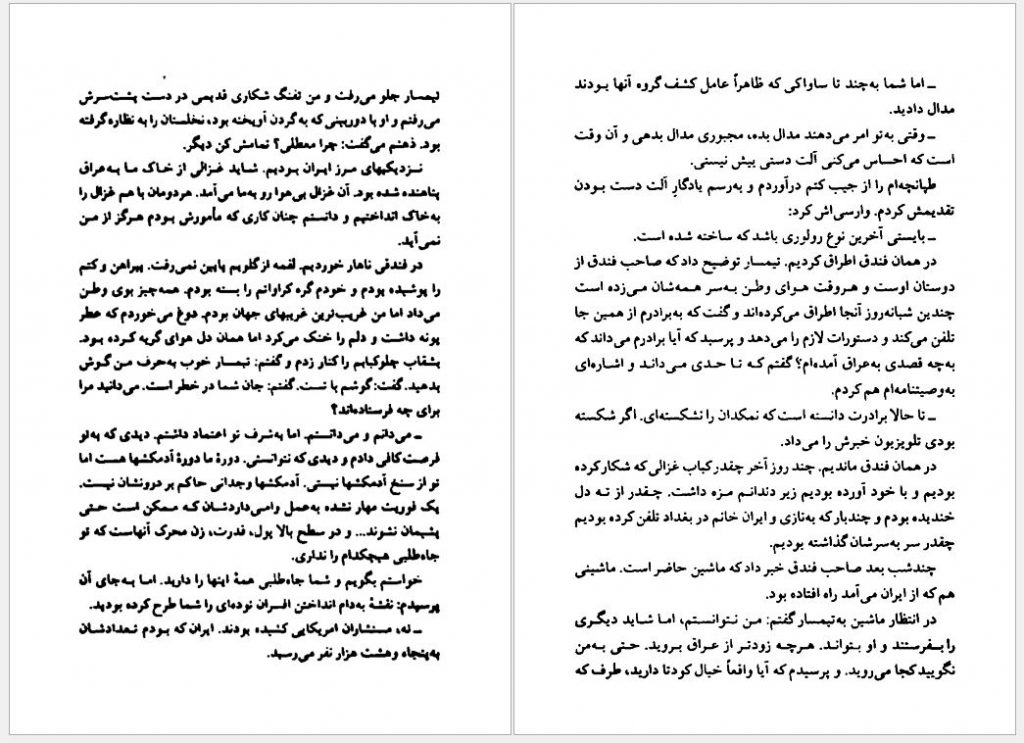 تیمسار جلو می‌رفت و من تفنگ شکاری قدیمی در دست پشت‌سرش
می‌رفتم و او با دوربینی که به گردن آویخته بود، نخلستان را به نظاره گرفته
بود. ذهنم می‌گفت: چرا معطلی؟ تمامش کن دیگر.
نزدیکیهای مرز ایران بودیم. شاید غزالی از خاک ما به‌عراق
پناهنده شده بود. آن غزال بی‌هوا رو به‌ما می‌آمد. هردومان با هم غزال را
به‌خاک انداختیم و دانستم چنان کاری که مأمورش بودم هرگز از من
نمی‌آید.
در فندقی ناهار خوردیم. لقمه از گلویم پایین نمی‌رفت. پیراهن و کتم
را پوشیده بودم و خودم گره کراواتم را بسته بودم. همه‌چیز بوی وطن
می‌داد اما من غریب‌ترین غریبهای جهان بودم. دوغ می‌خوردم که عطر
پونه داشت و دلم را خنک می‌کرد اما همان دل هوای گریه کرده بود.
بشقاب چلوکبابم را کنار زدم و گفتم: تیمسار خوب به‌حرف من گوش
بدهید. گفت: گوشم با تست. گفتم: جان شما در خطر است. می‌دانید مرا
برای چه فرستاده‌اند؟
ـ می‌دانم و می‌دانستم. اما به‌شرف تو اعتماد داشتم. دیدی که به‌تو
فرصت کافی دادم و دیدی که نتوانستی. دورهٔ ما دورهٔ آدمکشها هست اما
تو از سنخ آدمکشها نیستی. آدمکشها وجدانی حاکم بر درونشان نیست.
یک فوریت مهار نشده به‌عمل وامی‌داردشان که ممکن است حتی
پشیمان نشوند... و در سطح بالا پول، قدرت، زن محرک آنهاست که تو
جاه‌طلبی هیچکدام را نداری.
خواستم بگویم و شما جاه‌طلبی همهٔ اینها را دارید. اما به‌جای آن
پرسیدم: نقشهٔ به‌دام انداختن افسران توده‌ای را شما طرح کرده بودید.
ـ نه، مستشاران امریکایی کشیده بودند. ایران که بودم تعدادشان
به‌پنجاه وهشت هزار نفر می‌رسید.
ـ اما شما به‌چند تا ساواکی که ظاهراً عامل کشف گروه آنها بودند
مدال دادید.
ـ وقتی به‌تو امر می‌دهند مدال بده، مجبوری مدال بدهی و آن وقت
است که احساس می‌کنی آلت دستی بیش نیستی.
طپانچه‌ام را از جیب کتم درآوردم و به‌رسم یادگارِ آلت دست بودن
تقدیمش کردم. وارسی‌اش کرد:
ـ بایستی آخرین نوع رولوری باشد که ساخته شده است.
در همان فندق اطراق کردیم. تیمسار توضیح داد که صاحب فندق از
دوستان اوست و هروقت هوای وطن به‌سر همه‌شان می‌زده است
چندین شبانه‌روز آنجا اطراق می‌کرده‌اند و گفت که به‌برادرم از همین جا
تلفن می‌کند و دستورات لازم را می‌دهد و پرسید که آیا برادرم می‌داند که
به‌چه قصدی به‌عراق آمده‌ام؟ گفتم که تا حدی می‌داند و اشاره‌ای
به‌وصیتنامه‌ام هم کردم.
ـ تا حالا برادرت دانسته است که نمکدان را نشکسته‌ای. اگر شکسته
بودی تلویزیون خبرش را می‌داد.
در همان فندق ماندیم. چند روز آخر چقدر کباب غزالی که شکار کرده
بودیم و با خود آورده بودیم زیر دندانم مزه داشت. چقدر از ته دل
خندیده بودم و چندبار که به‌نازی و ایران خانم در بغداد تلفن کرده بودیم
چقدر سر به‌سرشان گذاشته بودیم.
چندشب بعد صاحب فندق خبر داد که ماشین حاضر است. ماشینی
هم که از ایران می‌آمد راه افتاده بود.
در انتظار ماشین به‌تیمسار گفتم: من نتوانستم، اما شاید دیگری
را بفرستند و او بتواند. هرچه زودتر از عراق بروید. حتی به‌من
نگویید کجا می‌روید. و پرسیدم که آیا واقعاً خیال کودتا دارید، طرف که